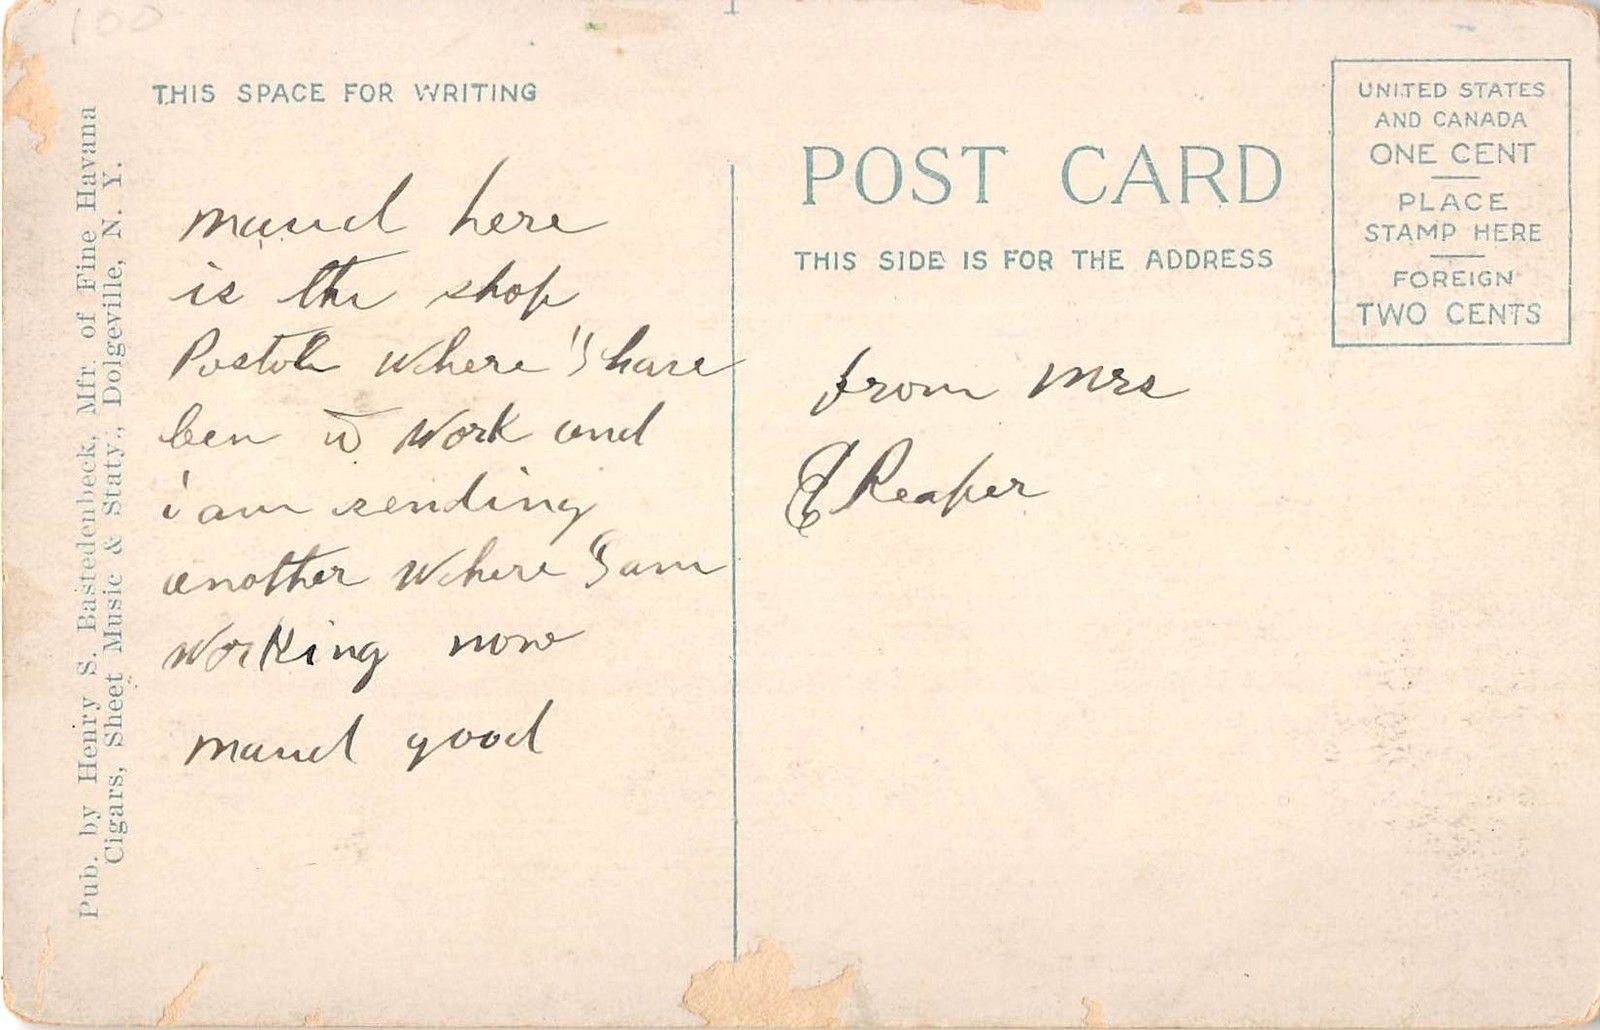 100
THIS SPACE FOR WRITING
Pub. by Henry S. Bastedenbeck, Mfr. of Fine Havana
Cigars, Sheet Music & Staty., Dolgeville, N. Y.
maud here
is the shop
Postol where I have
ben to work and
i am sending
another where I am
working now
maud good
POST CARD
THIS SIDE IS FOR THE ADDRESS
UNITED STATES
AND CANADA
ONE CENT
PLACE
STAMP HERE
FOREIGN
TWO CENTS
from Mrs
Reaper